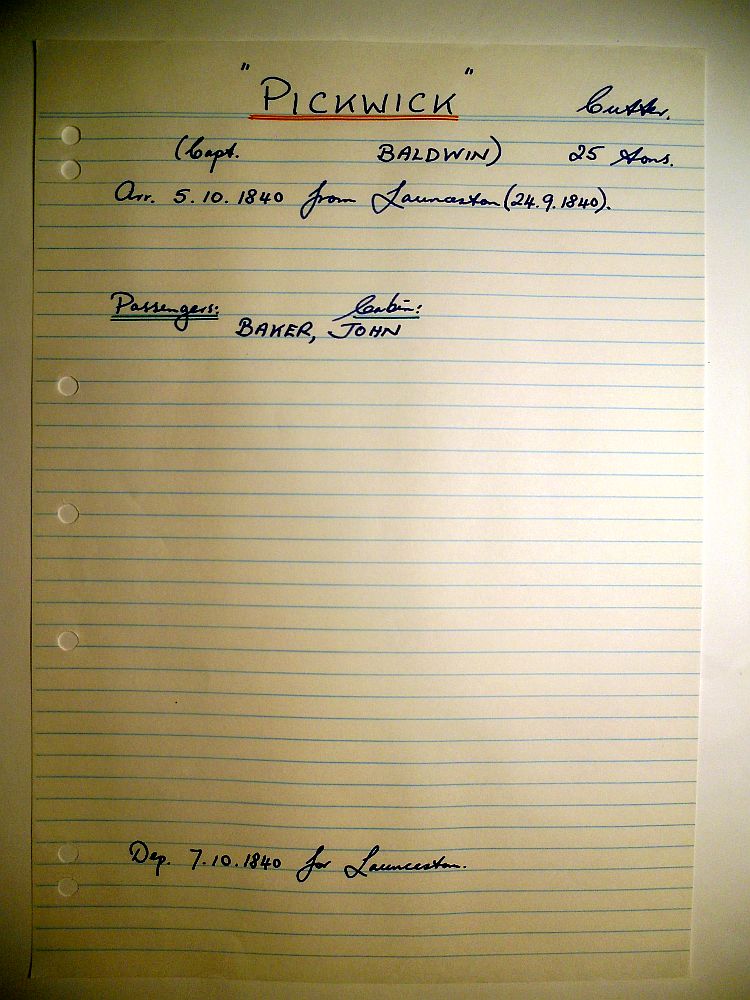 "PICKWICK" Cutter.
(Capt. BALDWIN) 25 tons.
Arr. 5.10.1840 from Launceston (24.9.1840).
Passengers: Cabin:
BAKER, JOHN
Dep. 7.10.1840 for Launceston.